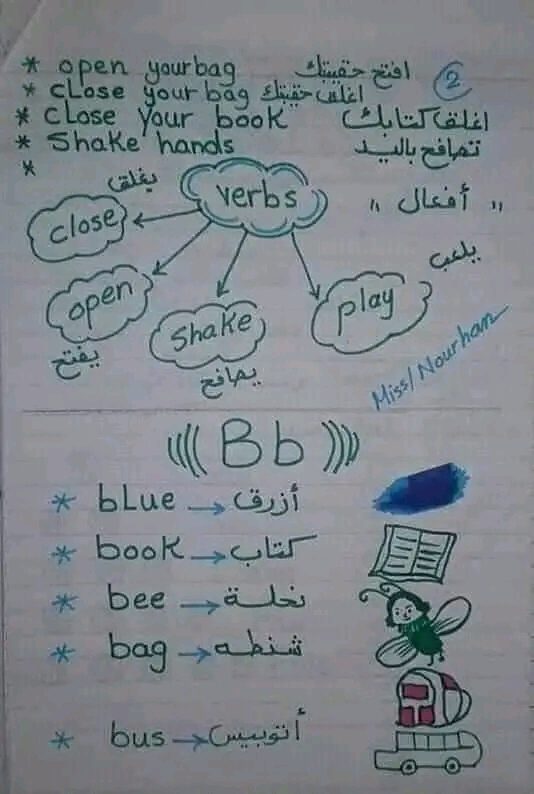 * open your bag افتح حقيبتك 2
* close your bag اغلق حقيبتك
* close your book اغلق كتابك
* Shake hands تصافح باليد
*
verbs " أفعال "
close يغلق
open يفتح
Shake يصافح
play يلعب
Miss/Nourhan
((( Bb )))
* blue → أزرق
* book → كتاب
* bee → نحلة
* bag → شنطه
* bus → أتوبيس